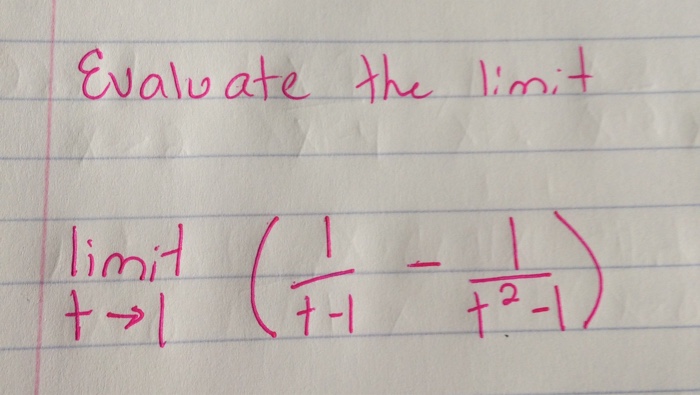 Evaluate the limit
limit
t→1 (1/(t-1) - 1/(t²-1))